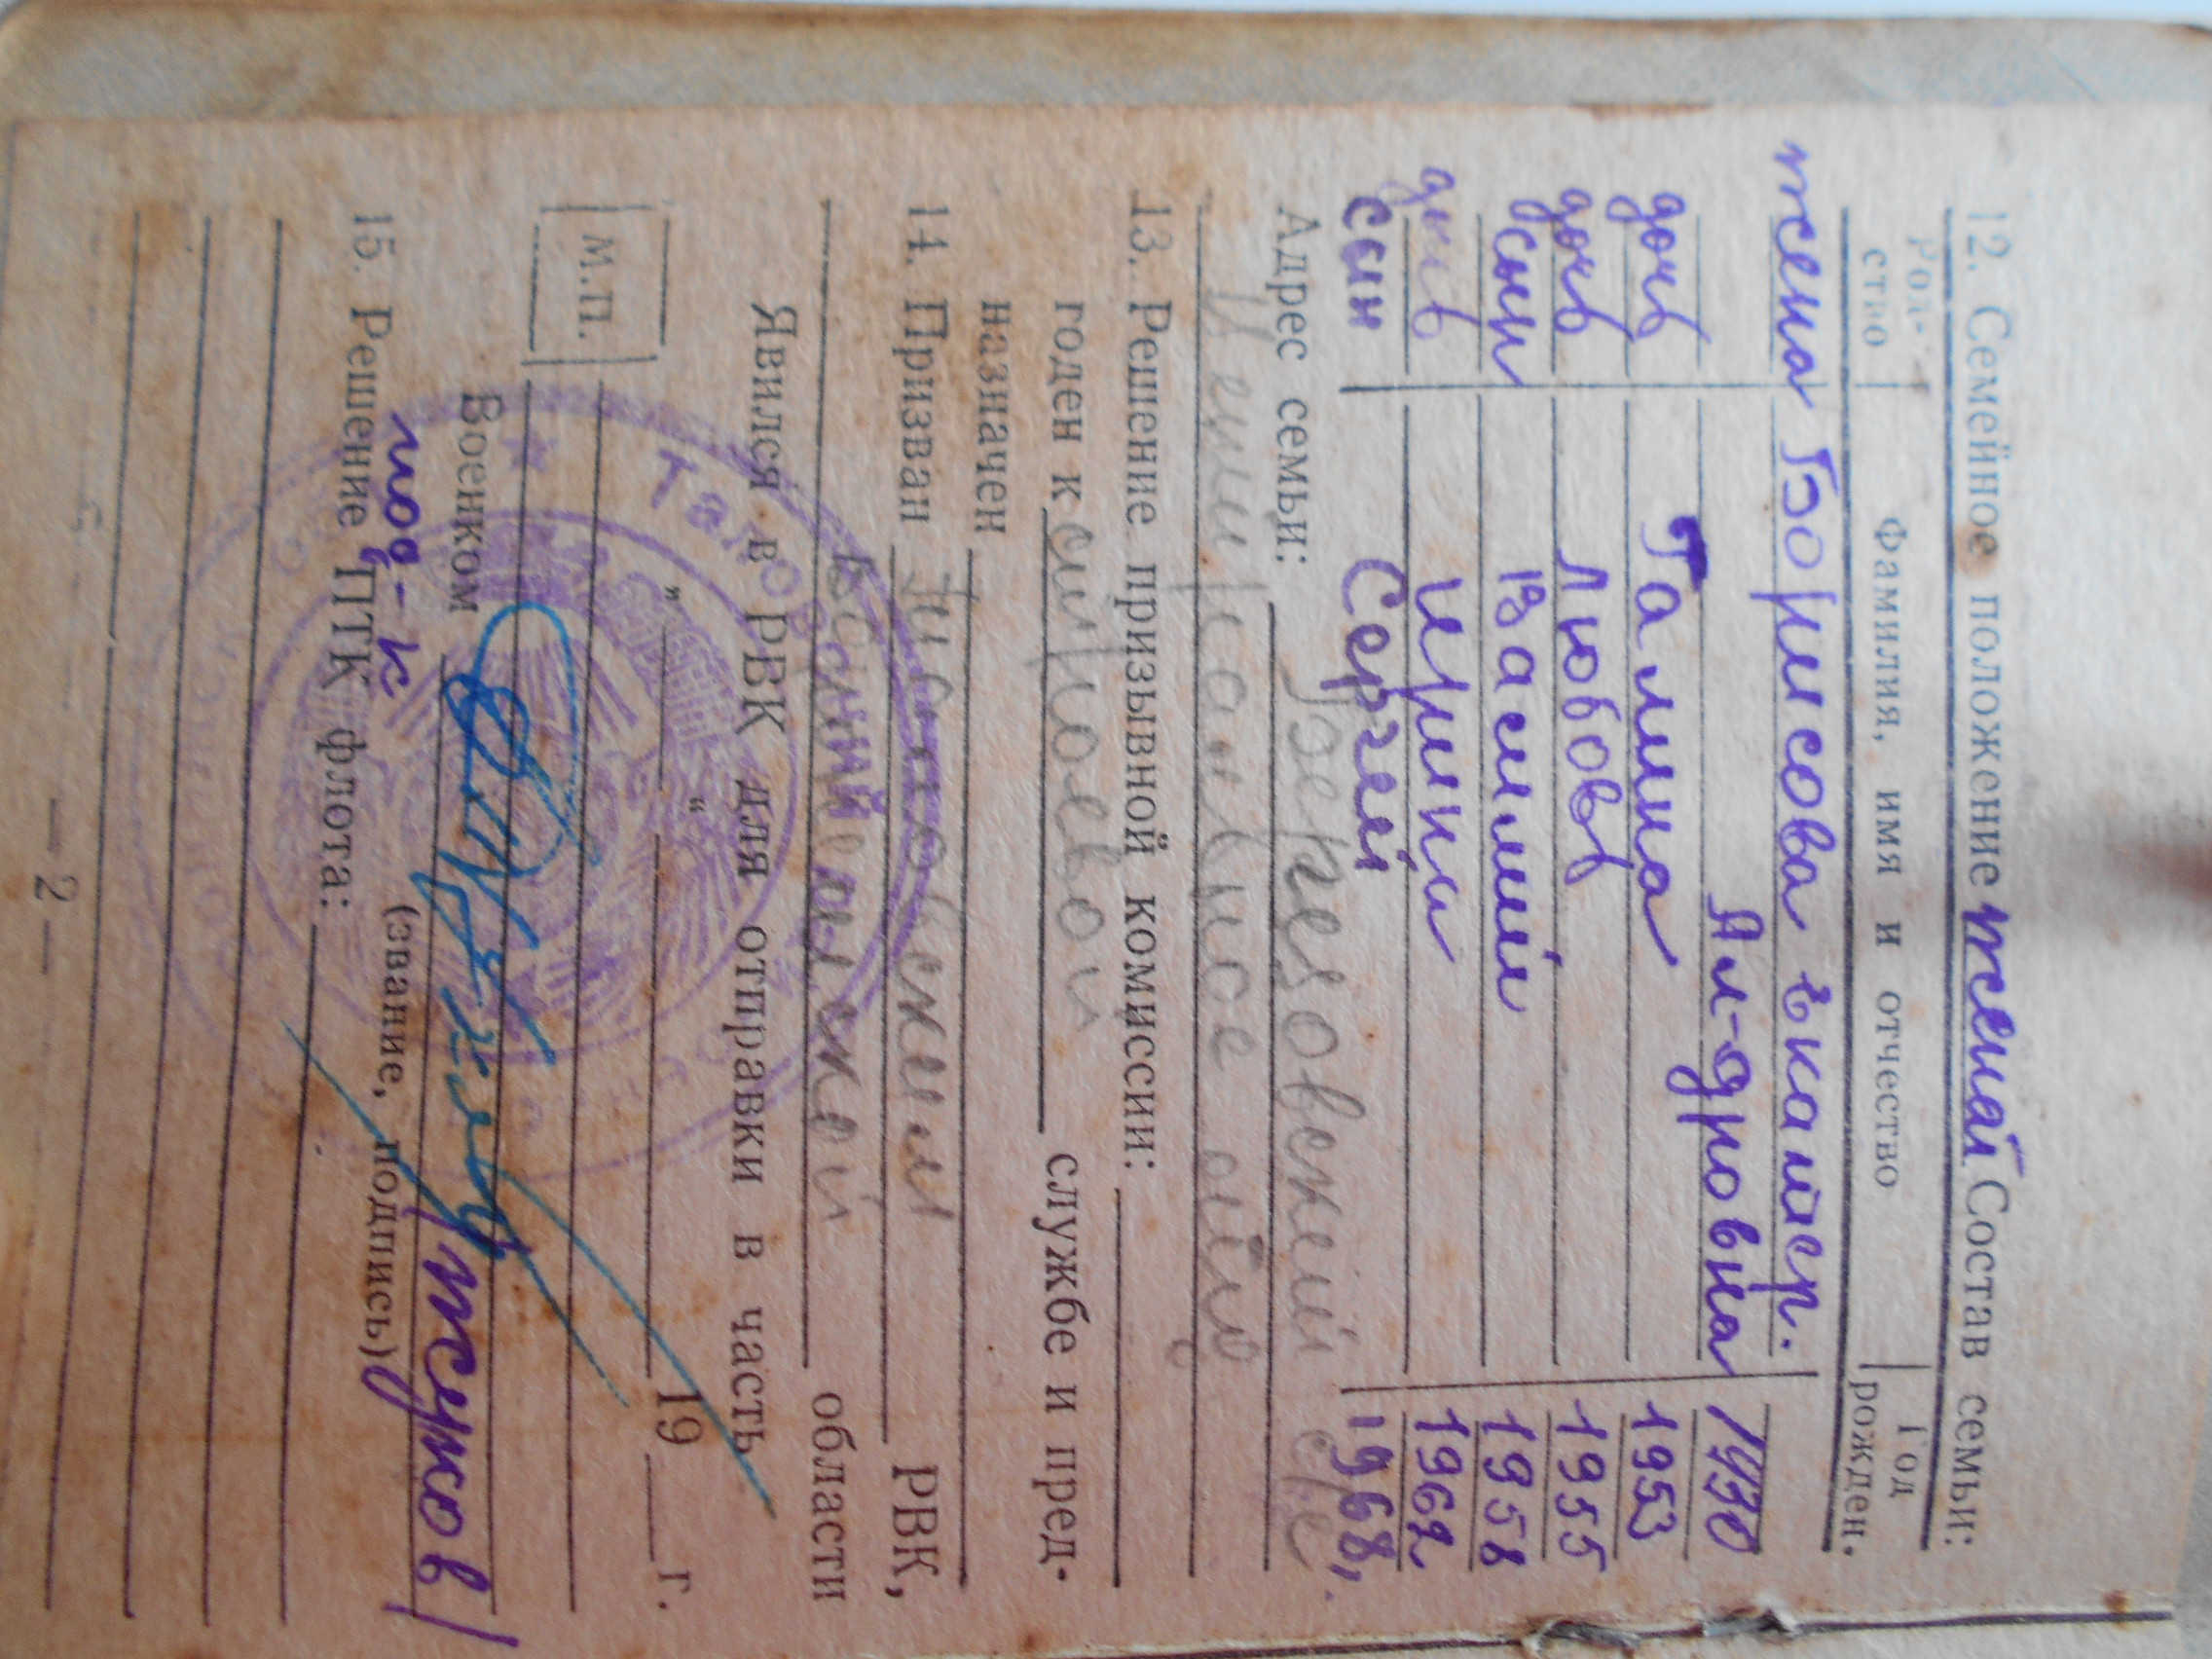 12. Семейное положение женат Состав семьи:
Род- ство Фамилия, имя и отчество Год рожден.
жена Борисова Екатер.
Ал-дровна 1930
дочь Галина 1953
дочь Любовь 1955
сын Василий 1958
дочь Ирина 1962
сын Сергей 1968г.
Адрес семьи:
13. Решение призывной комиссии:
годен к строевой службе и пред-
назначен
14. Призван РВК,
области
Явился в РВК для отправки в часть
„ “ 19 г.
М.П.
Военком
под-к (звание, подпись)
15. Решение ПТК флота:
— 2 —